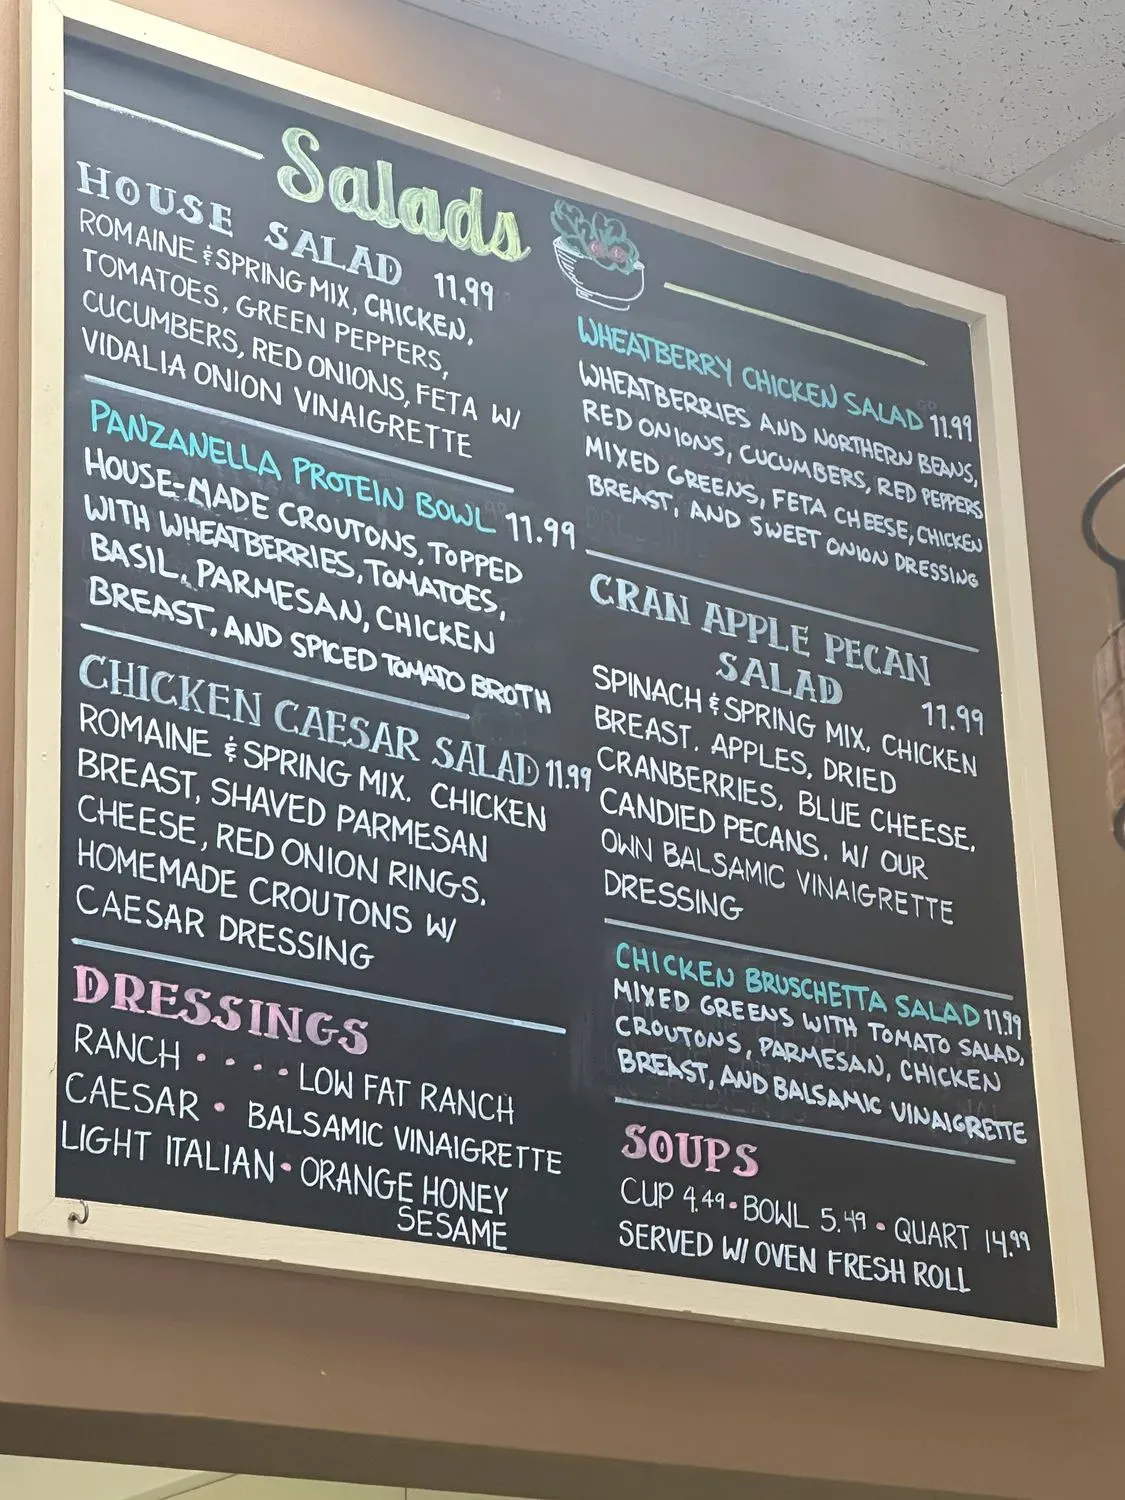 Salads
HOUSE SALAD 11.99
ROMAINE & SPRING MIX, CHICKEN,
TOMATOES, GREEN PEPPERS,
CUCUMBERS, RED ONIONS, FETA W/
VIDALIA ONION VINAIGRETTE
PANZANELLA PROTEIN BOWL 11.99
HOUSE-MADE CROUTONS, TOPPED
WITH WHEATBERRIES, TOMATOES,
BASIL, PARMESAN, CHICKEN
BREAST, AND SPICED TOMATO BROTH
CHICKEN CAESAR SALAD 11.99
ROMAINE & SPRING MIX, CHICKEN
BREAST, SHAVED PARMESAN
CHEESE, RED ONION RINGS,
HOMEMADE CROUTONS W/
CAESAR DRESSING
DRESSINGS
RANCH • • • • LOW FAT RANCH
CAESAR • BALSAMIC VINAIGRETTE
LIGHT ITALIAN • ORANGE HONEY
SESAME
WHEATBERRY CHICKEN SALAD 11.99
WHEATBERRIES AND NORTHERN BEANS,
RED ONIONS, CUCUMBERS, RED PEPPERS
MIXED GREENS, FETA CHEESE, CHICKEN
BREAST, AND SWEET ONION DRESSING
CRAN APPLE PECAN
SALAD 11.99
SPINACH & SPRING MIX, CHICKEN
BREAST, APPLES, DRIED
CRANBERRIES, BLUE CHEESE,
CANDIED PECANS, W/ OUR
OWN BALSAMIC VINAIGRETTE
DRESSING
CHICKEN BRUSCHETTA SALAD 11.99
MIXED GREENS WITH TOMATO SALAD,
CROUTONS, PARMESAN, CHICKEN
BREAST, AND BALSAMIC VINAIGRETTE
SOUPS
CUP 4.49 • BOWL 5.49 • QUART 14.99
SERVED W/ OVEN FRESH ROLL